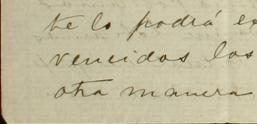 te lo podrá ex
vencidos los
otra manera